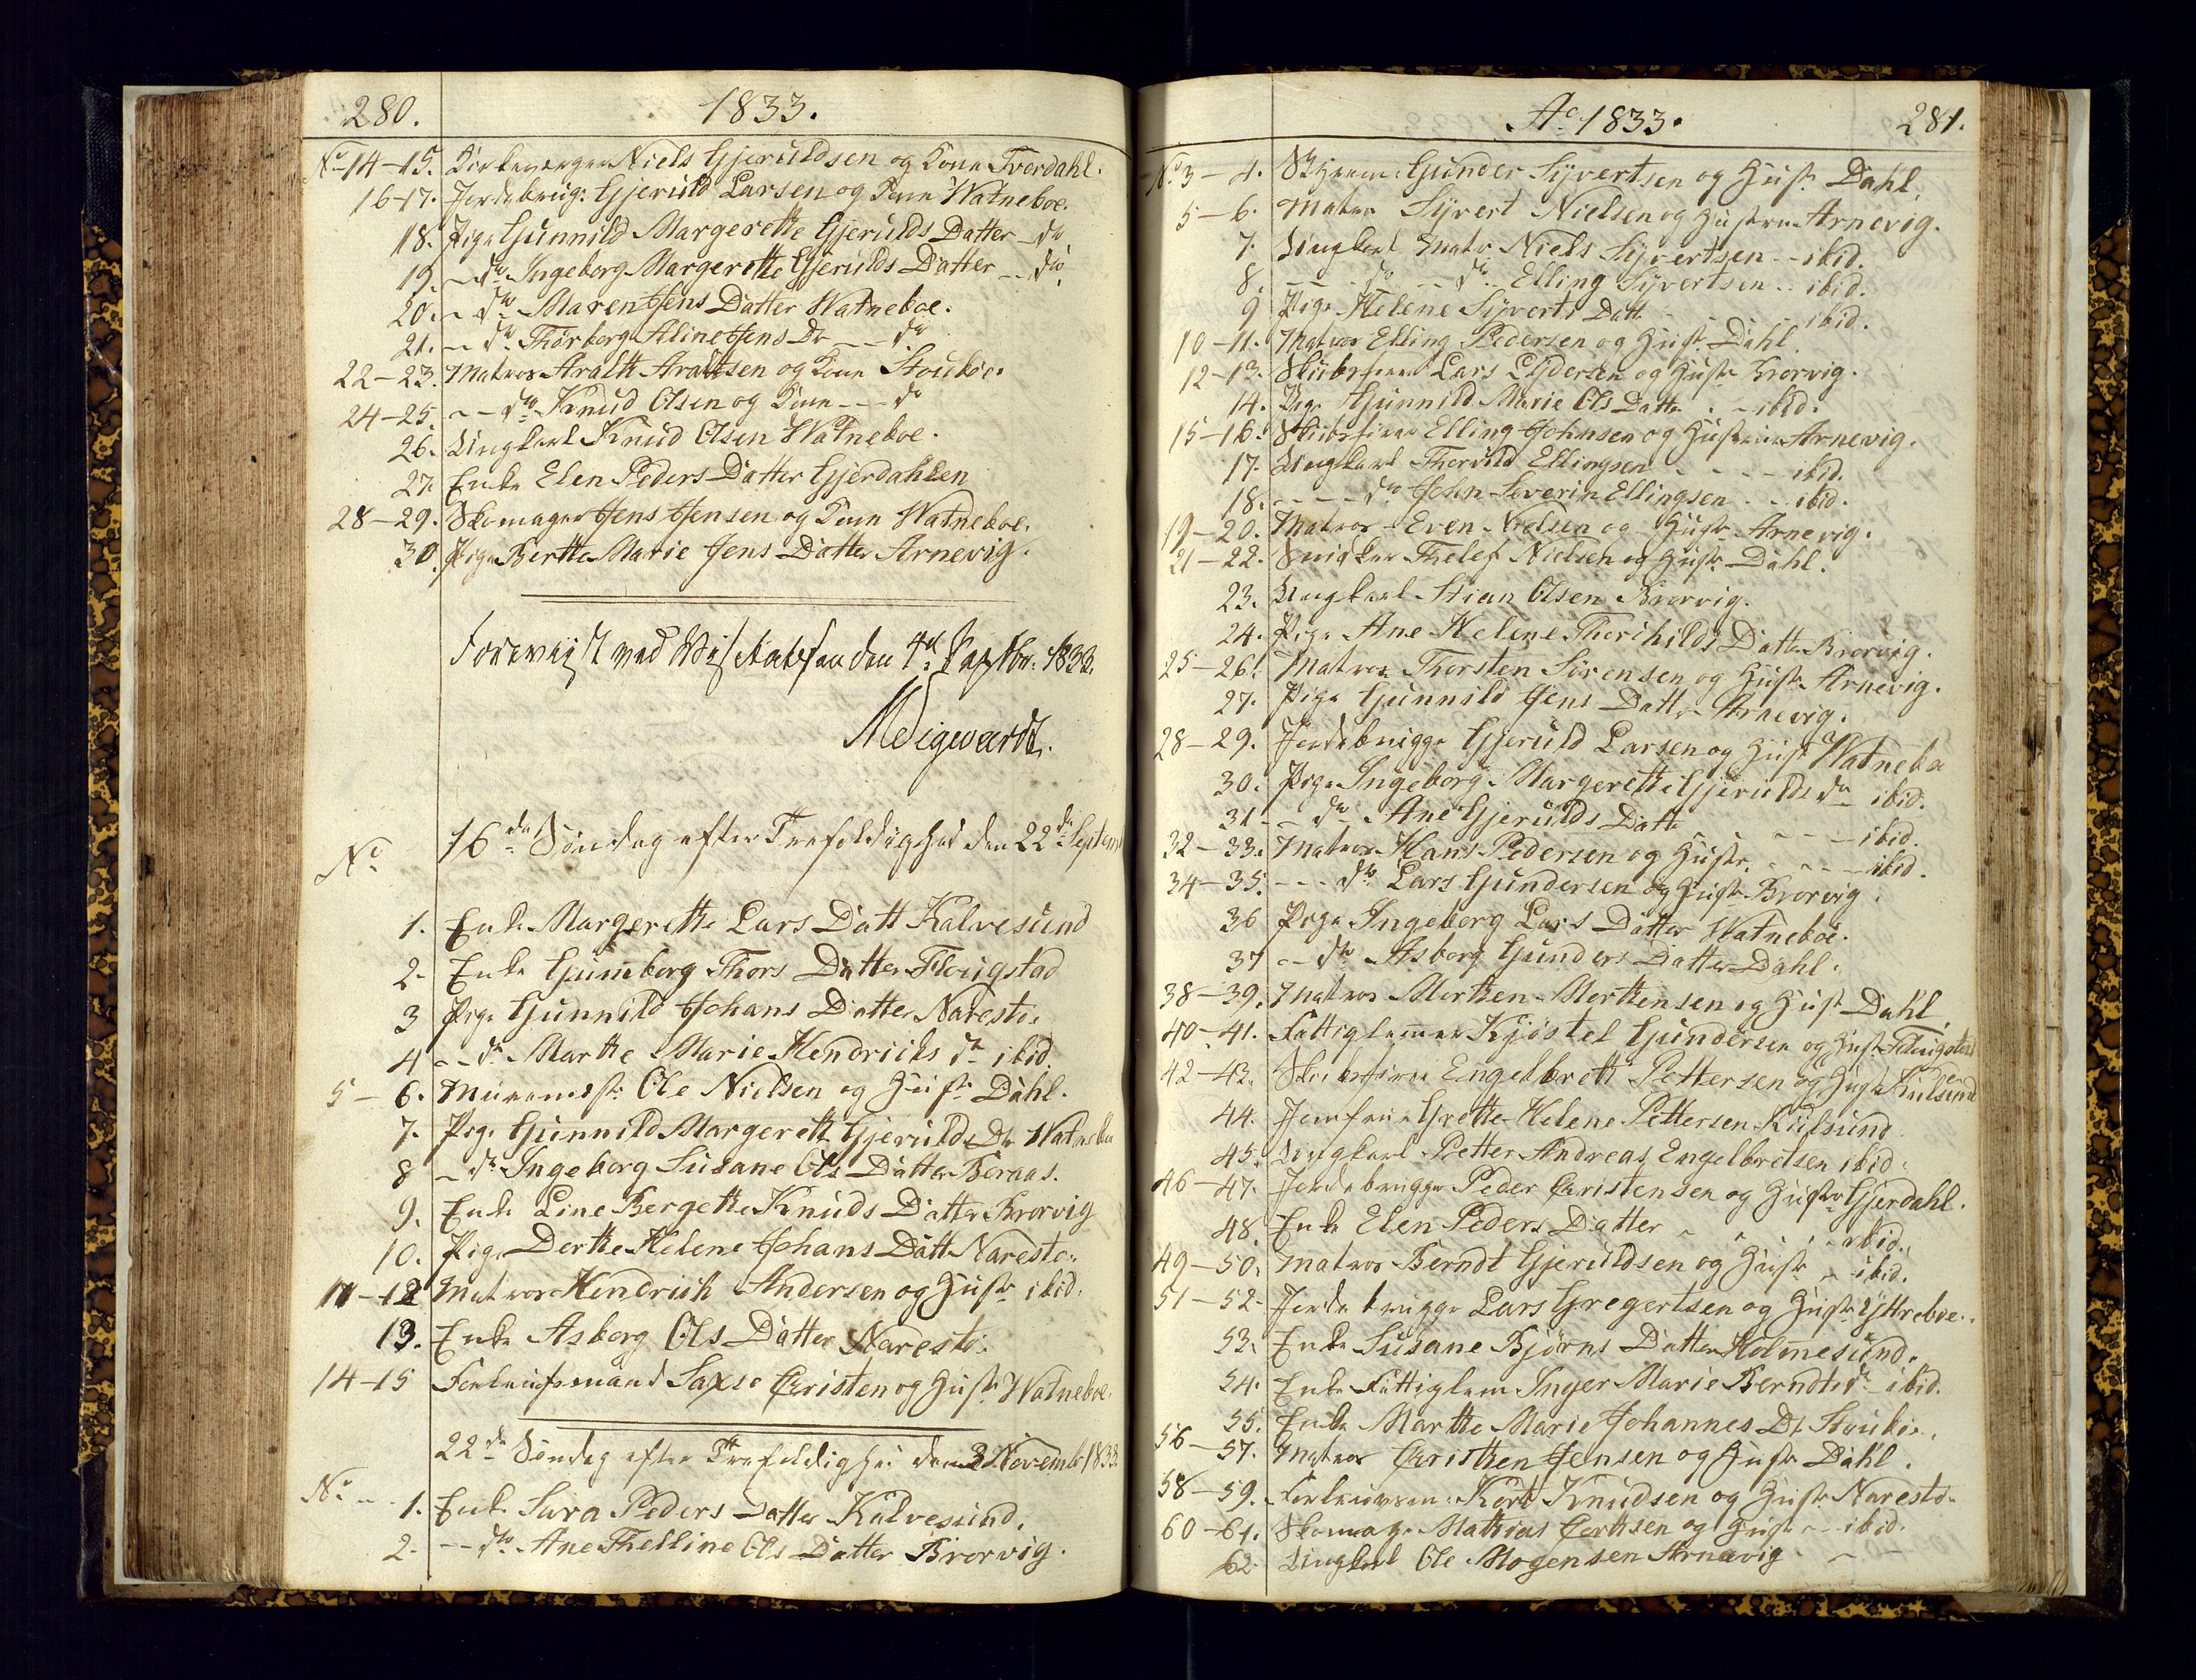 280. 1833.
No 14-15. Kirkeværger Niels Gjeruldsen og Kone Tverdahl.
16-17. Jordebrug: Gjeruld Larsen og Kone Watneboe.
18. Pige Gunnild Margerethe Gjerulds Datter - do
19. - do Ingeborg Margerethe Gjerulds Datter - - do.
20. - do Maren Jens Datter Watneboe.
21. - do Thorborg Aline Jens Dr - - do
22-23. Matros Aralth Araltsen og Kone Stouboe.
24-25. - - do Knud Olsen og Kone - - - do
26. Ungkarl Knud Olsen Watneboe.
27. Enke Elen Peders Datter Gjerdahlen
28-29. Skomager Jens Jensen og Kone Watneboe.
30. Pige Berthe Marie Jens Datter Arnevig.
Foreviist ved Visitatsen den 4de Septbr: 1833.
No 16de Søndag efter Trefoldighed den 22de Septem
1. Enke Margerethe Lars Datt Kalvesund
2. Enke Gunnborg Thors Datter Flougstad
3 Pige Gunnild Johans Datter Naresto.
4 - - do Marthe Marie Hendrichs dr ibid.
5-6. Muremestr: Ole Nielsen og Hustr Dahl.
7. Pige Gunnild Margerethe Gjerulds Dr Watneboe
8 - do Ingeborg Susane Ols Datter Beraas.
9. Enke Line Bergethe Knuds Datter Brorvig
10. Pige Dorthe Helene Johans Datt Naresto.
11-12 Matros Hendrich Andersen og Hustr ibid.
13. Enke Asborg Ols Datter Naresto.
14-15 Forlousmand Saxse Cristen og Hustr Watneboe.
22de Søndag efter Trefoldighed den 3 Novembr 1833.
No - - 1. Enke Sara Peders Datter Kalvesund.
2. - - do Ane Thelline Ols Datter Brorvig.
Ao 1833. 281.
No 3-4. Skipem: Gunder Syvertsen og Hustr Dahl.
5-6. Matros Syvert Nielsen og Hustrue Arnevig.
7. Ungkarl Matr Niels Syvertsen - - ibid.
8. - - do - - do - Elling Syvertsen - - ibid.
9 Pige Helene Syverts Datt - - - ibid.
10-11. Matros Elling Pedersen og Hustr Dahl.
12-13. Skibsfører Lars Lydersen og Hustr Brorvig.
14. Pige Gunnild Marie Ols Datter - - ibid.
15-16. Skibsfører Elling Johnsen og Hustrue Arnevig.
17. Ungkarl Thorvild Ellingsen - - - ibid.
18. - - - do John Severin Ellingsen - - ibid.
19-20. Matros Even Nielsen og Hustr Arnevig.
21-22. Snidker Thelef Nielsen og Hustr Dahl.
23. Ungkarl Stian Olsen Brorvig.
24. Pige Ane Helene Thorchilds Datter Brorvig.
25-26. Matros Thorsten Sørensen og Hustr Arnevig.
27. Pige Gunnild Jens Datter Arnevig.
28-29. Jordebrugger Gjeruld Larsen og Hustr Watneboe
30. Pige Ingeborg Margerethe Gjerulds dr ibid.
31 - - do Ane Gjerulds Datt - - - ibid.
32-33. Matros Hans Pedersen og Hustr - - - ibid.
34-35. - - - do Lars Gundersen og Hustr Brorvig.
36 Pige Ingeborg Lars Datter Watneboe.
37 - - do Asborg Gunders Datter Dahl.
38-39. Matros Morthen Morthensen og Hustr Dahl.
40-41. Fattiglemmer Kjøstel Gundersen og Hustr Flougstad
42-43. Skibsfører Engelbrett Pettersen og Hustr Kielsund
44. Jomfrue Grethe Helene Pettersen Kielsund
45. Ungkarl Petter Andreas Engelbretsen ibid.
46-47. Jordebrugger Peder Cristensen og Hustr Gjerdahl.
48. Enke Elen Peders Datter - - - ibid.
49-50. Matros Berndt Gjeruldsen og Hustr - ibid.
51-52. Jordebrugger Lars Gregertsen og Hustr Yttreboe.
53. Enke Susane Bjørns Datter Holmesund.
54. Enke Fattiglem Inger Marie Berndts dr ibid.
55. Enke Marthe Marie Johannes Dr Stouboe.
56-57. Matros Cristhen Jensen og Hustr Dahl.
58-59. Forlousm: Kort Knudsen og Hustr Naresto.
60-61. Skomager Mathias Certhsen og Hustr - - ibid.
62. Ungkarl Ole Mogensen Arnevig - -